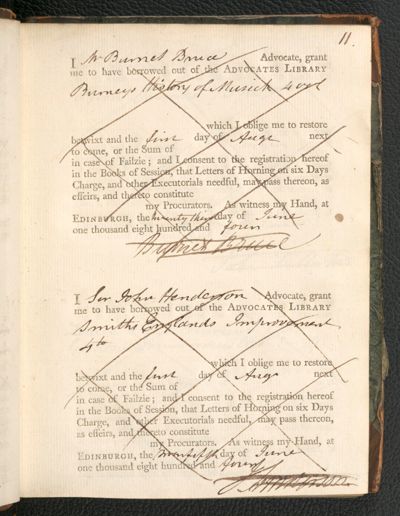 11.
I Mr Burnet Bruce Advocate, grant
me to have borrowed out of the ADVOCATES LIBRARY
Burneys History of Musick 4 vol
which I oblige me to restore
betwixt and the first day of Augt next
to come, or the Sum of
in case of Failzie; and I consent to the registration hereof
in the Books of Session, that Letters of Horning on six Days
Charge, and other Executorials needful, may pass thereon, as
effeirs, and thereto constitute
my Procurators. As witness my Hand, at
EDINBURGH, the twenty third day of June
one thousand eight hundred and four
Burnet Bruce
I Sir John Henderson Advocate, grant
me to have borrowed out of the ADVOCATES LIBRARY
Smiths Englands Improvement
4to
which I oblige me to restore
betwixt and the first day of Augt next
to come, or the Sum of
in case of Failzie; and I consent to the registration hereof
in the Books of Session, that Letters of Horning on six Days
Charge, and other Executorials needful, may pass thereon,
as effeirs, and thereto constitute
my Procurators. As witness my Hand, at
EDINBURGH, the day of June
one thousand eight hundred and four